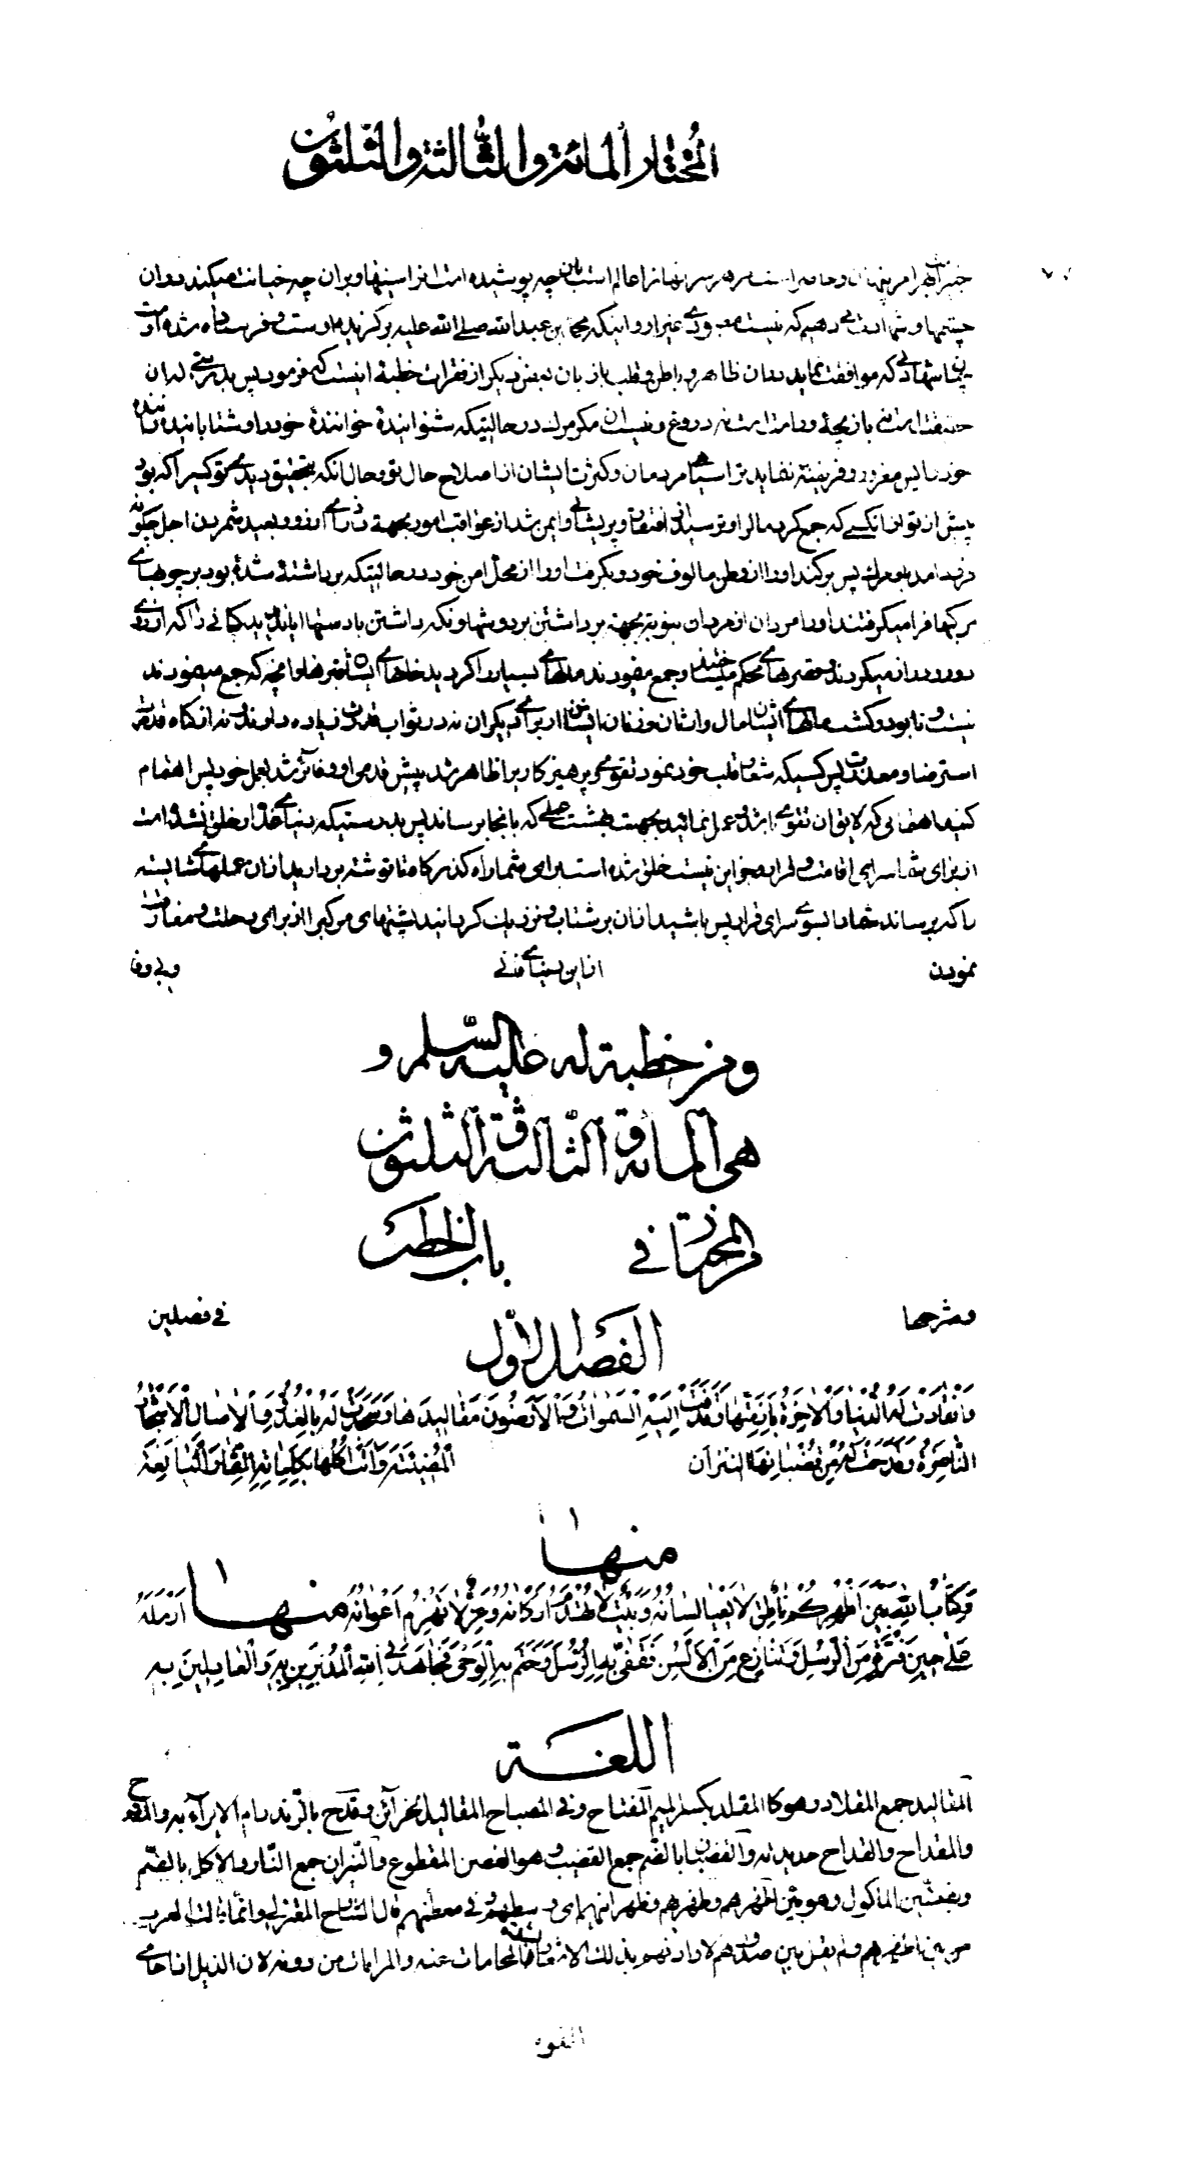 المختار المائة والثالثة والثلثون
چشمها و شهادت میدهیم که نیست معبودی غیر او و اینکه محمد بن عبدالله صلی الله علیه برگزیده اوست و فرستاده شده اوست
چنان شهادتی که موافقت نماید در آن ظاهر و باطن و قلب با زبان بعض دیگر از فقرات خطبه اینست که فرمود پس بدرستی که آن
حقیقة است نه بازیچه و راست است نه دروغ و نیست آن مگر مرگ در حالتیکه شنواننده خواننده خود و شتاباننده راننده
خود پس مغرور و فریفته ننماید ترا سیاهی مردمان و کثرت ایشان از اصلاح حال تو و حال آنکه بتحقیق دیدی تو کسی را که بود
پیش از تو از آنکسی که جمع کرد مال را و ترسید از افتقار و پریشانی و ایمن شد از عواقب امور بجهة درازی آرزو و بعید شمردن اجل چگونه
فرود آمد باو مرگ پس برکند او را از وطن مألوف خود و بگرفت او را از محل امن خود در حالتیکه برداشته شده بود بر چوبهای
مرگ فرا میگرفتند او را مردان از مردان بنوبه بجهة برداشتن بر دوشها و نگه داشتن با دستها آیا ندیدید کسانی را که آرزوی
دور و دراز میکردند و قصرهای محکم میساختند و جمع مینمودند مالهای بسیار را گردید خانهای ایشان قبرها و آنچه که جمع مینمودند
نیست و نابود و گشت مالهای ایشان مال وارثان و زنان ایشان از برای دیگران نه در ثواب قدرت زیاده دارند و نه از گناه قدرت
استرضا و معذرت پس کسیکه شعار قلب خود نمود تقوی پرهیزکاری را ظاهر شد پیش قدمی او و فائز شد بعمل خود پس اهتمام
کنید اهتمامی که لایق آن تقوی باشد و عمل نمائید بجهت بهشت عملی که بآنجا برساند پس بدرستیکه دنیای غدار خلق نشده است
از برای شما سرای اقامت و قرار و جز این نیست خلق شده است برای شما راه گذرگاه تا توشه بردارید از آن عملهای شایسته
را که برساند شما را بسوی سرای قرار پس باشید از آن بر شتاب و نزدیک گردانید پشتهای مرکبها از برای رحلت و مفارقت
نمودن از این دنیای فانی و بی وفا
ومن خطبة له عليه السلام و
هي المائة والثالثة والثلثون
من المختار في باب الخطب
وشرحها في فصلين
الفصل الاول
وَانْقادَتْ لَهُ الدُّنْيا وَالْاخِرَةُ بِأَزِمَّتِها وَقَذَفَتْ إِلَيْهِ السَّمواتُ وَالْأَرَضُونَ مَقاليدَها وَسَجَدَتْ لَهُ بِالْغُدُوِّ وَالْاصالِ الْأَشْجارُ
النّاضِرَةُ وَقَدَحَتْ لَهُ مِنْ قُضْبانِهَا النّيرانَ الْمُضيئَةَ وَآتَتْ أُكُلَها بِكَلِماتِهِ الثِّمارُ الْيانِعَةُ
منها
وَكِتابُ اللهِ بَيْنَ أَظْهُرِكُمْ ناطِقٌ لا يَعْيا لِسانُهُ وَبَيْتٌ لا تُهْدَمُ أَرْكانُهُ وَعِزٌّ لا تُهْزَمُ أَعْوانُهُ منها أَرْسَلَهُ
عَلى حينِ فَتْرَةٍ مِنَ الرُّسُلِ وَتَنازُعٍ مِنَ الْأَلْسُنِ فَقَفّى بِهِ الرُّسُلَ وَخَتَمَ بِهِ الْوَحْيَ فَجاهَدَ فِي اللهِ الْمُدْبِرينَ عَنْهُ وَالْعادِلينَ بِهِ
اللغة
المقاليد جمع المقلاد وهو كالمقلد بكسر الميم المفتاح وفي المصباح المقاليد الخزائن وقدح بالزند رام الايراء به والمقدح
والمقداح والقداح حديدته والقضبان بالضم جمع القضيب وهو الغصن المقطوع والنيران جمع النار والأكل بالضم
وبضمتين المأكول وهو بين أظهرهم وظهريهم وظهرانيهم اي وسطهم وفي معظمهم قال الشارح المعتزلي وانما قالت العرب
من بين أظهرهم ولم يقل بين صدورهم لارادتهم بذلك الاشعار بشدة المحامات عنه والمرامات من دونه لأن النزيل اذا حامى
القوم